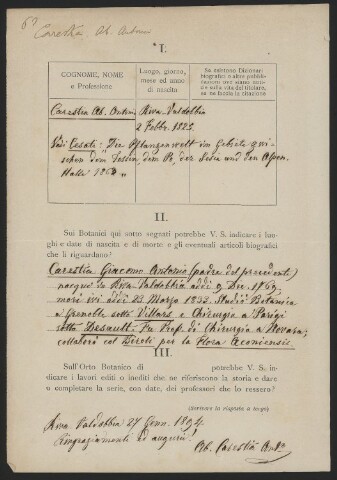 67
Carestia Ab. Antonio
I.
COGNOME, NOME
e Professione
Luogo, giorno,
mese ed anno
di nascita
Se esistono Dizionari
biografici e altre pubbli-
cazioni che diano conto
sulla vita del titolare,
se ne faccia la citazione
Carestia Ab. Antonio Riva-Valdobbia
2 Febbr. 1825
Vedi Cesati: Die Pflanzenwelt im Gebiete zwi-
schen dem Tessin, dem Po, der Sesia und den Alpen.
Halle 1863 "
II.
Sui Botanici qui sotto segnati potrebbe V. S. indicare i luo-
ghi e date di nascita e di morte e gli eventuali articoli biografici
che li riguardano?
Carestia Giacomo Antonio (padre del precedente)
nacque in Riva Valdobbia addì 9 Dic. 1769,
morì ivi addì 23 Marzo 1832. Studiò Botanica
a Grenoble sotto Villars e Chirurgia a Parigi
sotto Desault. Fu Prof. di Chirurgia a Novara;
collaborò col Biroli per la Flora Aconiensis.
III.
Sull'Orto Botanico di potrebbe V. S. in-
dicare i lavori editi o inediti che ne riferiscono la storia e dare
o completare la serie, con date, dei professori che lo ressero?
(Scrivere la risposta a tergo)
Riva Valdobbia 27 Genn. 1894.
Ringraziamenti ed auguri!
Ab. Carestia Ant°